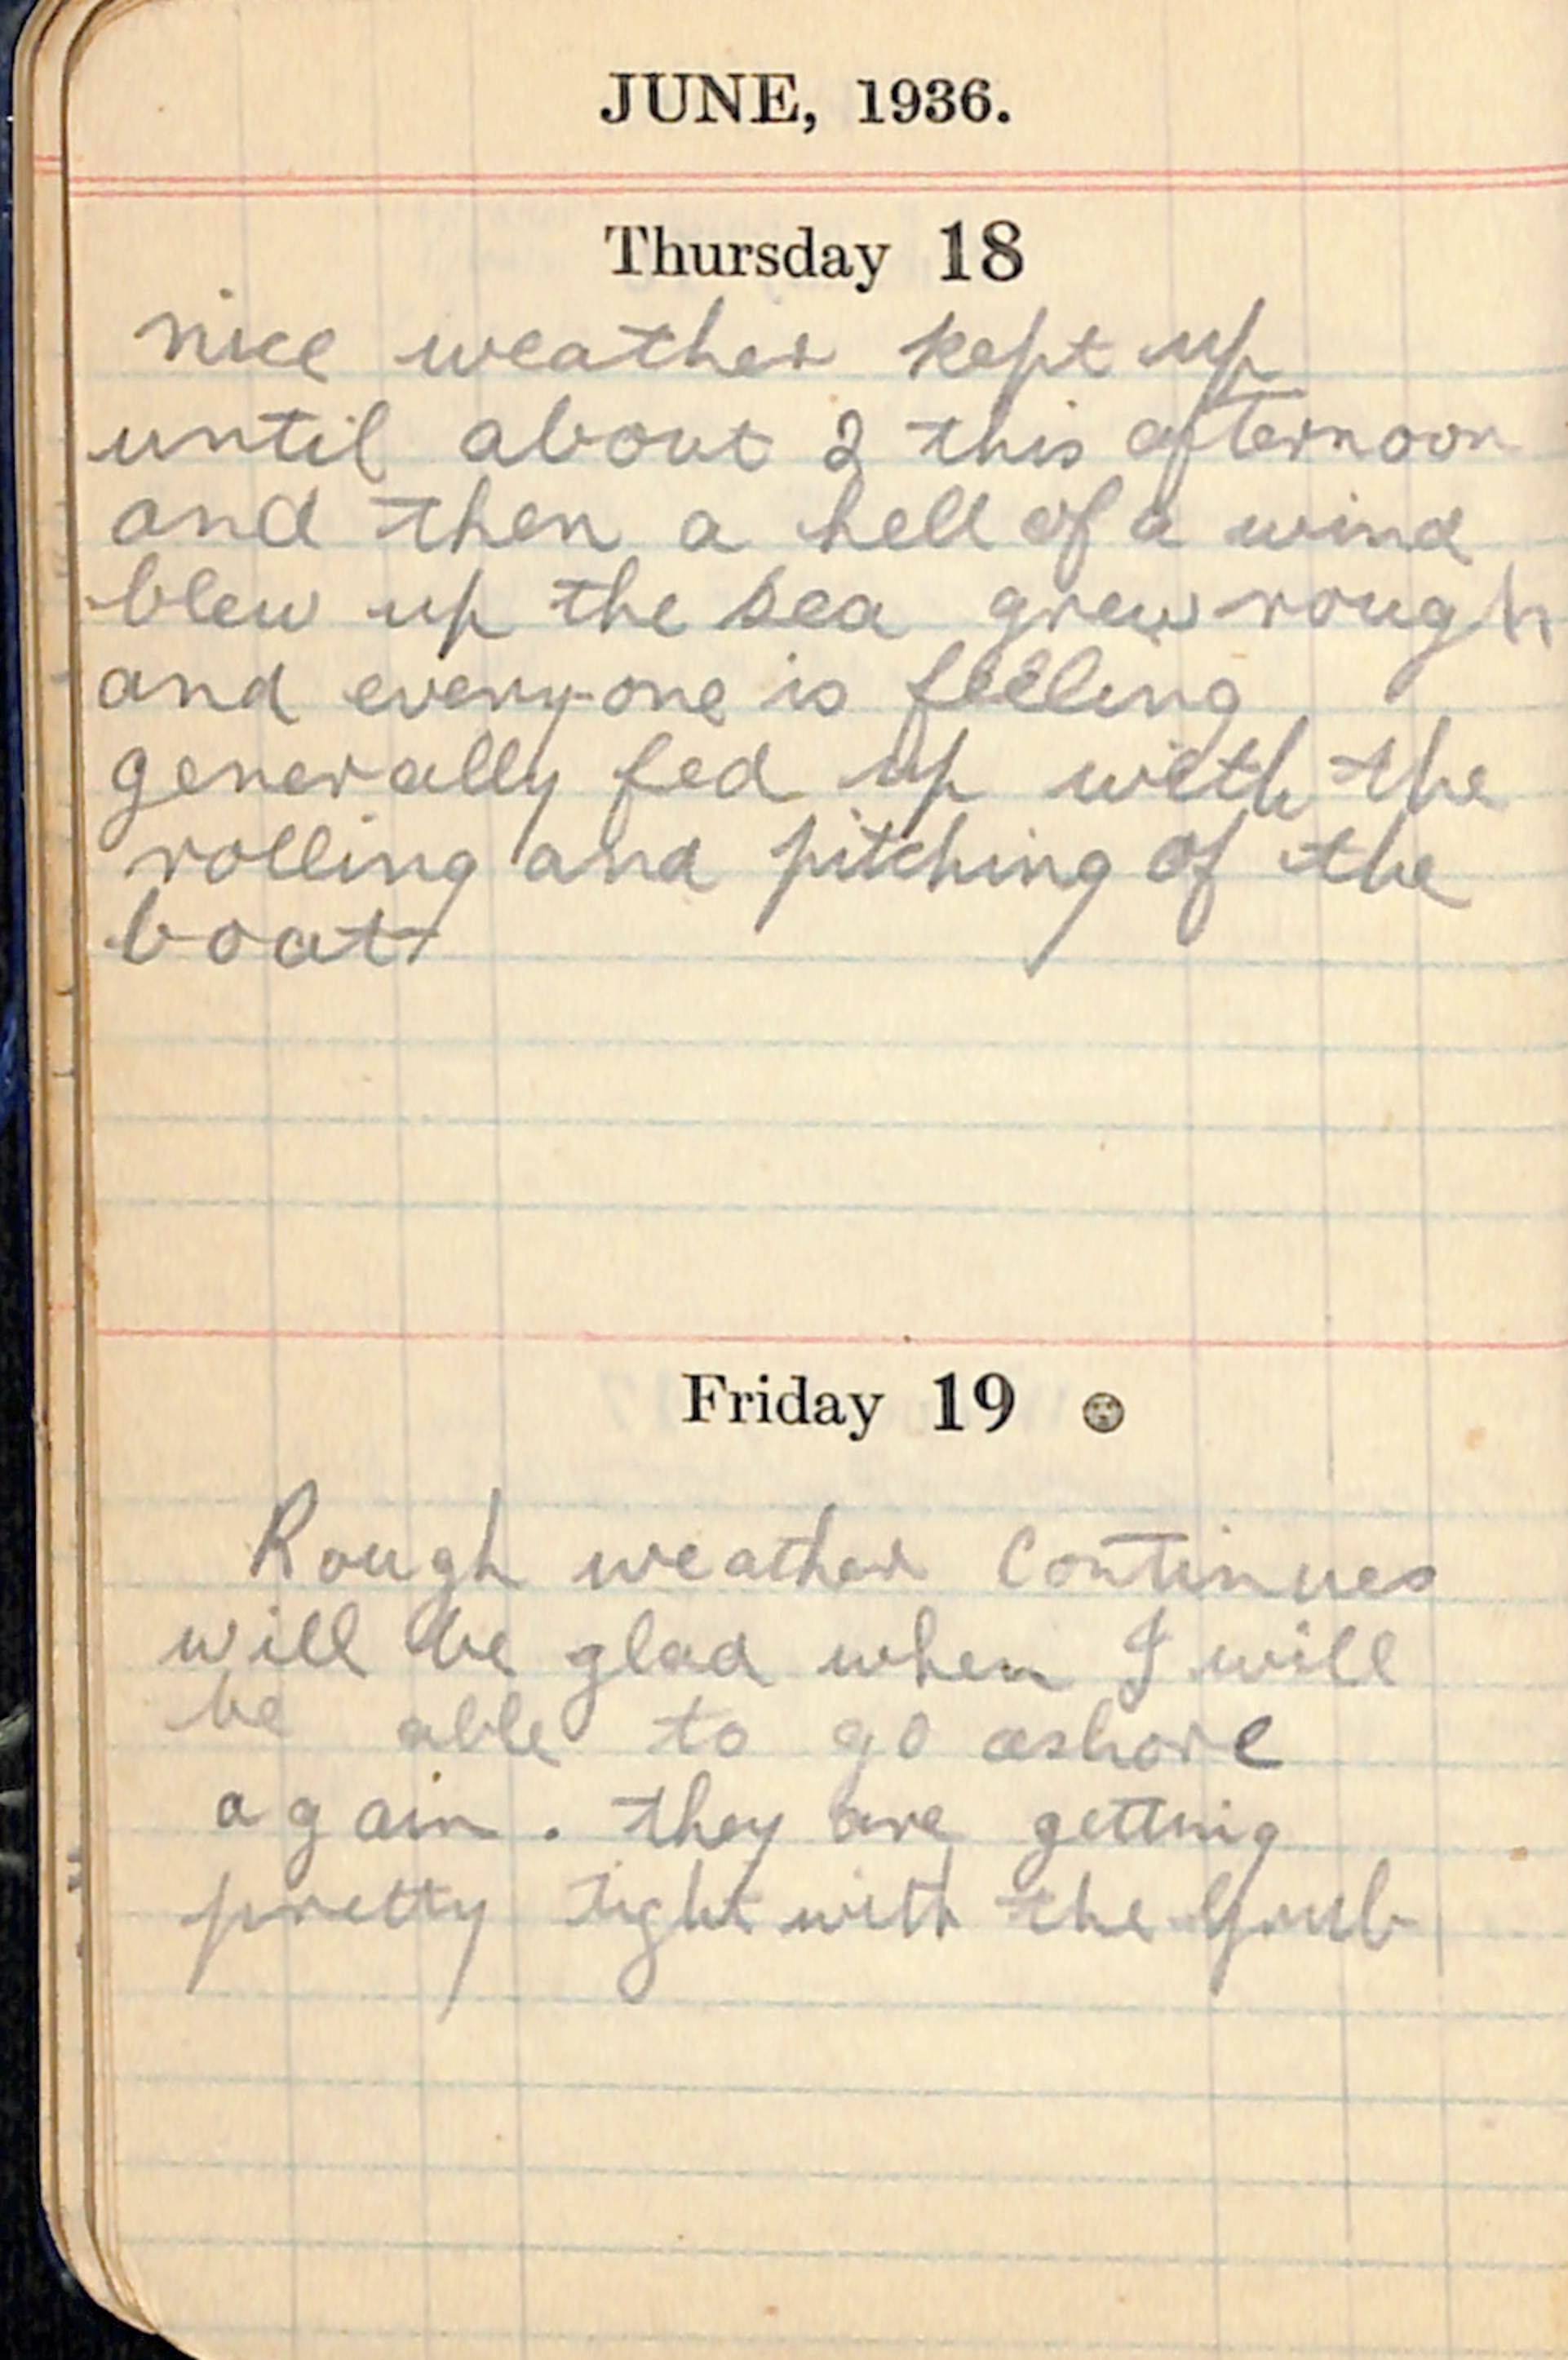 JUNE, 1936.
Thursday 18
nice weather kept up
until about 2 this afternoon
and then a hell of a wind
blew up the sea grew rough
and every-one is feeling
generally fed up with the
rolling and pitching of the
boat
Friday 19
Rough weather continues
will be glad when I will
be able to go ashore
again. they are getting
pretty tight with the Grub